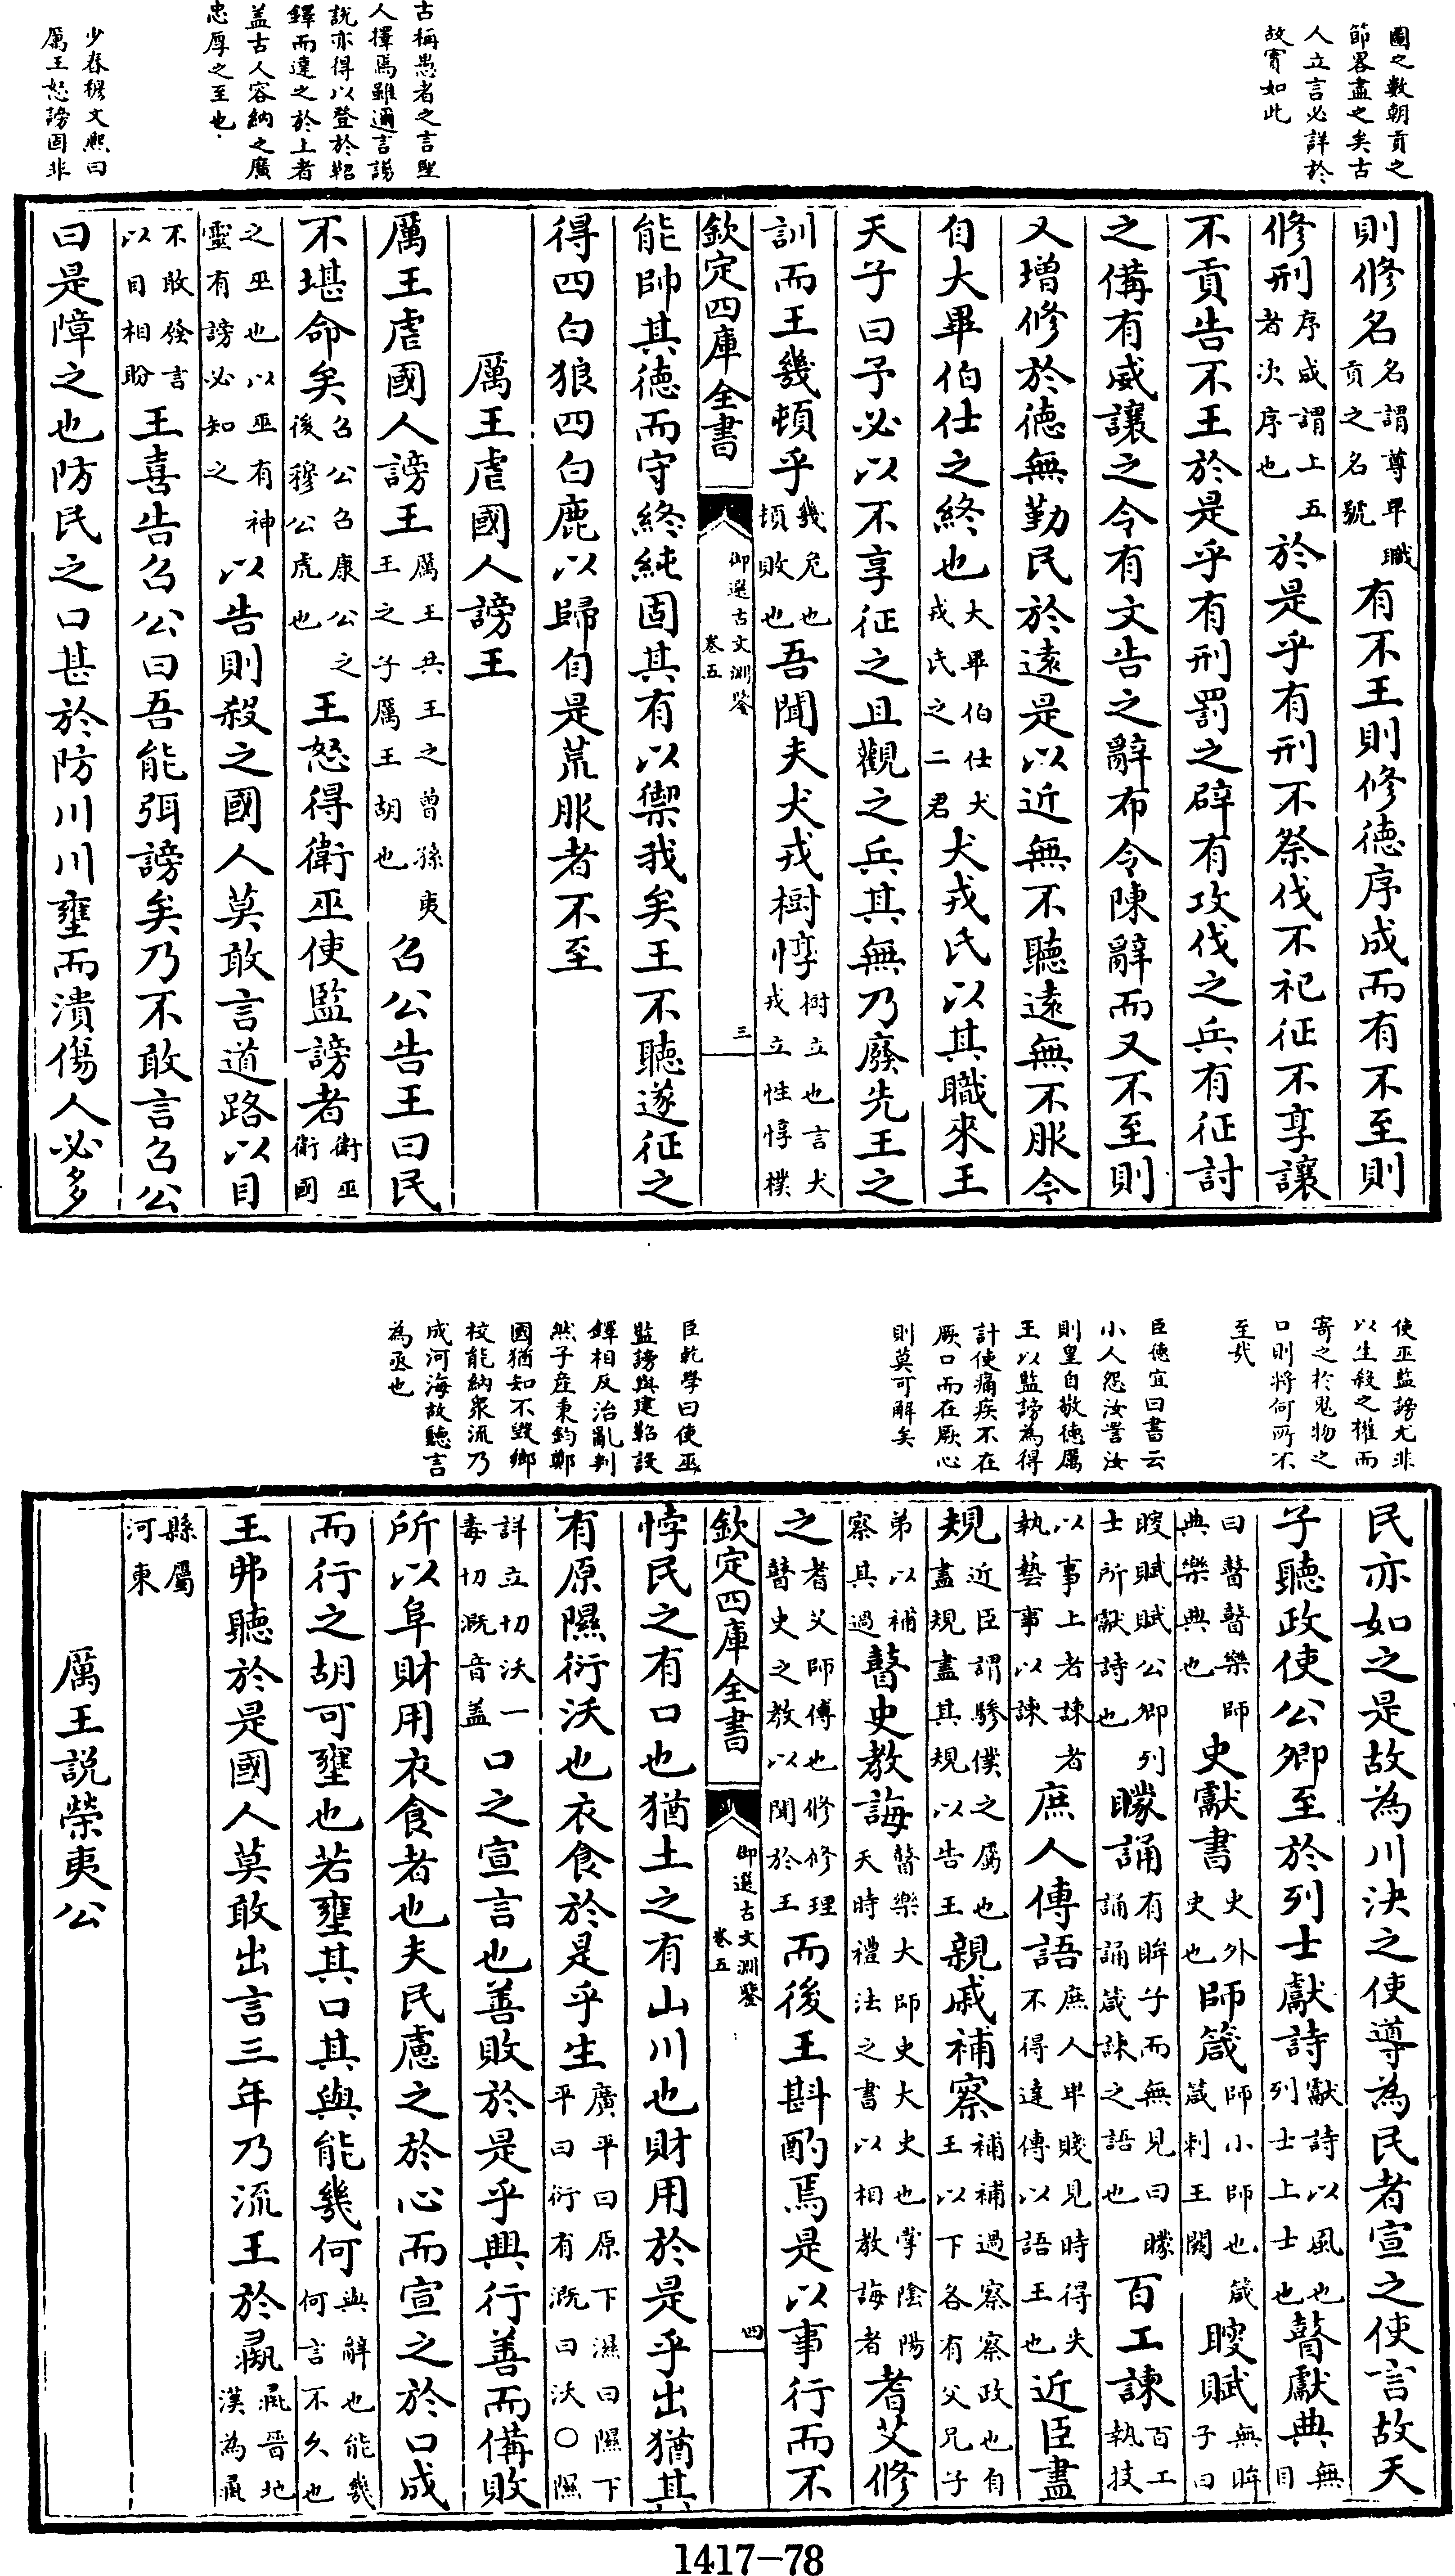 圖之數朝貢之
節畧盡之矣古
人立言必詳於
故實如此
古稱愚者之言聖
人擇焉雖邇言謗
說亦得以登於鞀
鐸而達之於上者
盖古人容納之廣
忠厚之至也
少春穆文熙曰
厲王怒謗固非
則修名名謂尊卑職貢之名號有不王則修德序成而有不至則
修刑序成謂上五者次序也於是乎有刑不祭伐不祀征不享讓
不貢告不王於是乎有刑罰之辟有攻伐之兵有征討
之備有威讓之令有文告之辭布令陳辭而又不至則
又增修於德無勤民於遠是以近無不聽遠無不服今
自大畢伯仕之終也大畢伯仕犬戎氏之二君犬戎氏以其職來王
天子曰予必以不享征之且觀之兵其無乃廢先王之
訓而王幾頓乎幾危也頓敗也吾聞夫犬戎樹惇樹立也言犬戎立性惇樸
欽定四庫全書 御選古文淵鑒 卷五 三
能帥其德而守終純固其有以禦我矣王不聽遂征之
得四白狼四白鹿以歸自是荒服者不至
厲王虐國人謗王
厲王虐國人謗王厲王共王之曾孫夷王之子厲王胡也召公告王曰民
不堪命矣召公召康公之後穆公虎也王怒得衛巫使監謗者衛巫衛國
之巫也以巫有神靈有謗必知之以告則殺之國人莫敢言道路以目
不敢發言以目相盼王喜告召公曰吾能弭謗矣乃不敢言召公
曰是障之也防民之口甚於防川川壅而潰傷人必多
使巫監謗尤非
以生殺之權而
寄之於鬼物之
口則將何所不
至哉
臣德宜曰書云
小人怨汝詈汝
則皇自敬德厲
王以監謗為得
計使痛疾不在
厥口而在厥心
則莫可解矣
臣乾學曰使巫
監謗與建鞀設
鐸相反治亂判
然子產秉鈞鄭
國猶知不毀鄉
校能納衆流乃
成河海故聽言
為亟也
民亦如之是故為川決之使導為民者宣之使言故天
子聽政使公卿至於列士獻詩獻詩以風也列士上士也瞽獻典無目
曰瞽瞽樂師典樂典也史獻書史外史也師箴師小師也箴箴刺王闕瞍賦無眸子曰
瞍賦賦公卿列士所獻詩也矇誦有眸子而無見曰矇誦誦箴諫之語也百工諫百工執技
以事上者諫者執藝事以諫庶人傳語庶人卑賤見時得失不得達傳以語王也近臣盡
規近臣謂驂僕之屬也盡規盡其規以告王親戚補察補補過察察政也自王以下各有父兄子
弟以補察其過瞽史教誨瞽樂大師史大史也掌陰陽天時禮法之書以相教誨者耆艾修
之耆艾師傅也修修理瞽史之教以聞於王而後王斟酌焉是以事行而不
欽定四庫全書 御選古文淵鑒 卷五 四
悖民之有口也猶土之有山川也財用於是乎出猶其
有原隰衍沃也衣食於是乎生廣平曰原下濕曰隰下平曰衍有溉曰沃〇隰
詳立切沃一毒切溉音盖口之宣言也善敗於是乎興行善而備敗
所以阜財用衣食者也夫民慮之於心而宣之於口成
而行之胡可壅也若壅其口其與能幾何與辭也能幾何言不久也
王弗聽於是國人莫敢出言三年乃流王於彘彘晉地漢為彘
縣屬河東
厲王說榮夷公
1417-78